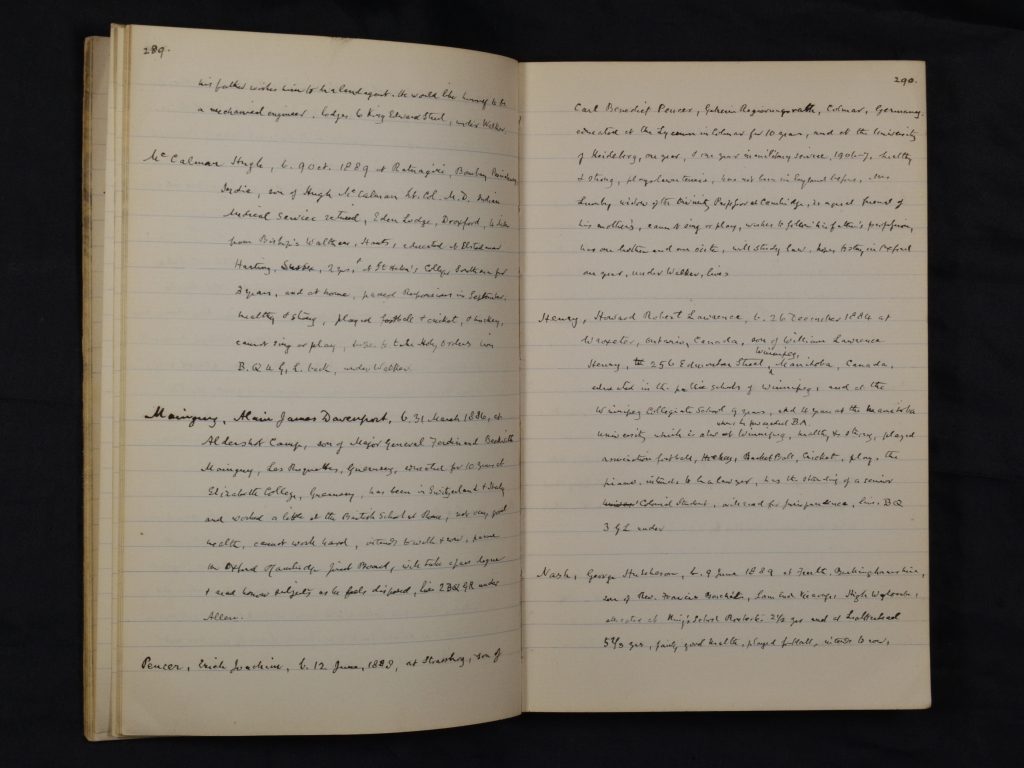 289.
his father wishes him to be a land agent. He would like himself to be
a mechanical engineer. lodges 6 King Edward Street, under Walker.
McCalman Hugh, b. 9 Oct. 1889 at Ratnagiri, Bombay Presidency
India, son of Hugh McCalman Lt. Col. M.D. Indian
Medical Service retired, Eden Lodge, Droxford,
from Bishop's Waltham, Hants, educated at
Harting, Sussex, 2 yrs, at St Helen's College Southsea for
3 years, and at home, passed Responsions in September.
healthy & strong, played football & cricket, & hockey,
cannot sing or play, hopes to take Holy Orders lives
B. Q. u. G. L. back, under Walker.
Mainguy, Alain James Davenport, b. 31 March 1886, at
Aldershot Camp, son of Major General Ferdinand Beckwith
Mainguy, Les Roquettes, Guernsey, educated for 10 years at
Elizabeth College, Guernsey, has been in Switzerland & Italy
and worked a little at the British School at Rome, not very good
health, cannot work hard, intends to walk & row, passed
the Oxford & Cambridge Joint Board, will take a pass degree
& read honour subjects as he feels disposed, lives 2 B Q G R under
Allen.
Peucer, Erich Joachim, b. 12 June, 1888, at Strassburg, son of
290.
Carl Benedict Peucer, Geheim Regierungsrath, Colmar, Germany.
educated at the Lyceum in Colmar for 10 years, and at the University
of Heidelberg, one year, & one year in military service, 1906-7, healthy
& strong, plays lawn tennis, has not been in England before. Mrs
Lumby widow of the Divinity Professor at Cambridge, is a great friend of
his mother's, cannot sing or play, wishes to follow his father's profession,
has one brother and one sister, will study law. hopes to stay in Oxford
one year, under Walker, lives
Henry, Howard Robert Lawrence, b. 26 December 1884 at
Ontario, Canada, son of William Lawrence
Henry, 256 Edmonton Street, Winnipeg, Manitoba, Canada,
educated in the public schools of Winnipeg, and at the
Winnipeg Collegiate School 9 years, and 4 years at the Manitoba
University which is also at Winnipeg, where he proceeded B.A. healthy & strong, played
association football, Hockey, Basket Ball, Cricket, plays the
piano. intends to be a lawyer, has the standing of a senior
Colonial Student, will read for jurisprudence, lives B Q
3 G L under
Nash, George Hutcheson, b. 9 June 1889 at Buckinghamshire,
son of Rev. Francis Lane End Vicarage High Wycombe,
educated at King's School Rochester 2 1/3 yrs and at Leatherhead
5 2/3 yrs, fairly good health, played football, intends to row,